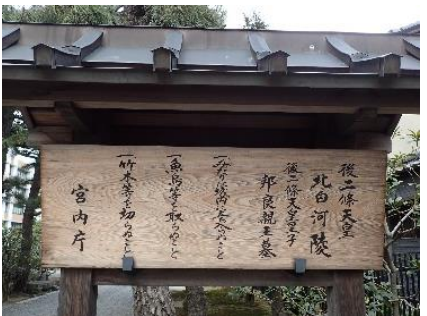 後二條天皇
北白河陵
後二條天皇皇子
邦良親王墓
一みだりに域内に立入らぬこと
一魚鳥等を取らぬこと
一竹木等を切らぬこと
宮内庁